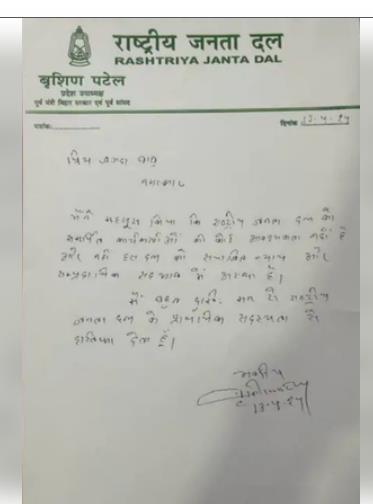 राष्ट्रीय जनता दल
RASHTRIYA JANTA DAL
बृशिण पटेल
प्रदेश उपाध्यक्ष
पूर्व मंत्री बिहार सरकार एवं पूर्व सांसद
पत्रांक:
दिनांक 13-4-24
प्रिय जगदा बाबू
नमस्कार
मैंने महसूस किया कि राष्ट्रीय जनता दल को
समर्पित कार्यकर्त्ताओं की कोई आवश्यकता नहीं है
और नहीं इस दल को सामाजिक न्याय और
साम्प्रदायिक सद्भाव में आस्था है।
मैं बहुत दुःखित मन से राष्ट्रीय
जनता दल के प्राथमिक सदस्यता से
इस्तिफा देता हूँ।
भवदीय
13-4-24